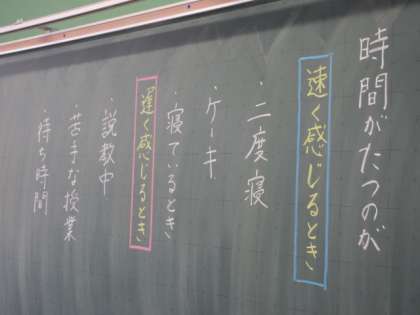 時間がたつのが
速く感じるとき
・二度寝
・ケーキ
・寝ているとき
遅く感じるとき
・説教中
・苦手な授業
・待ち時間